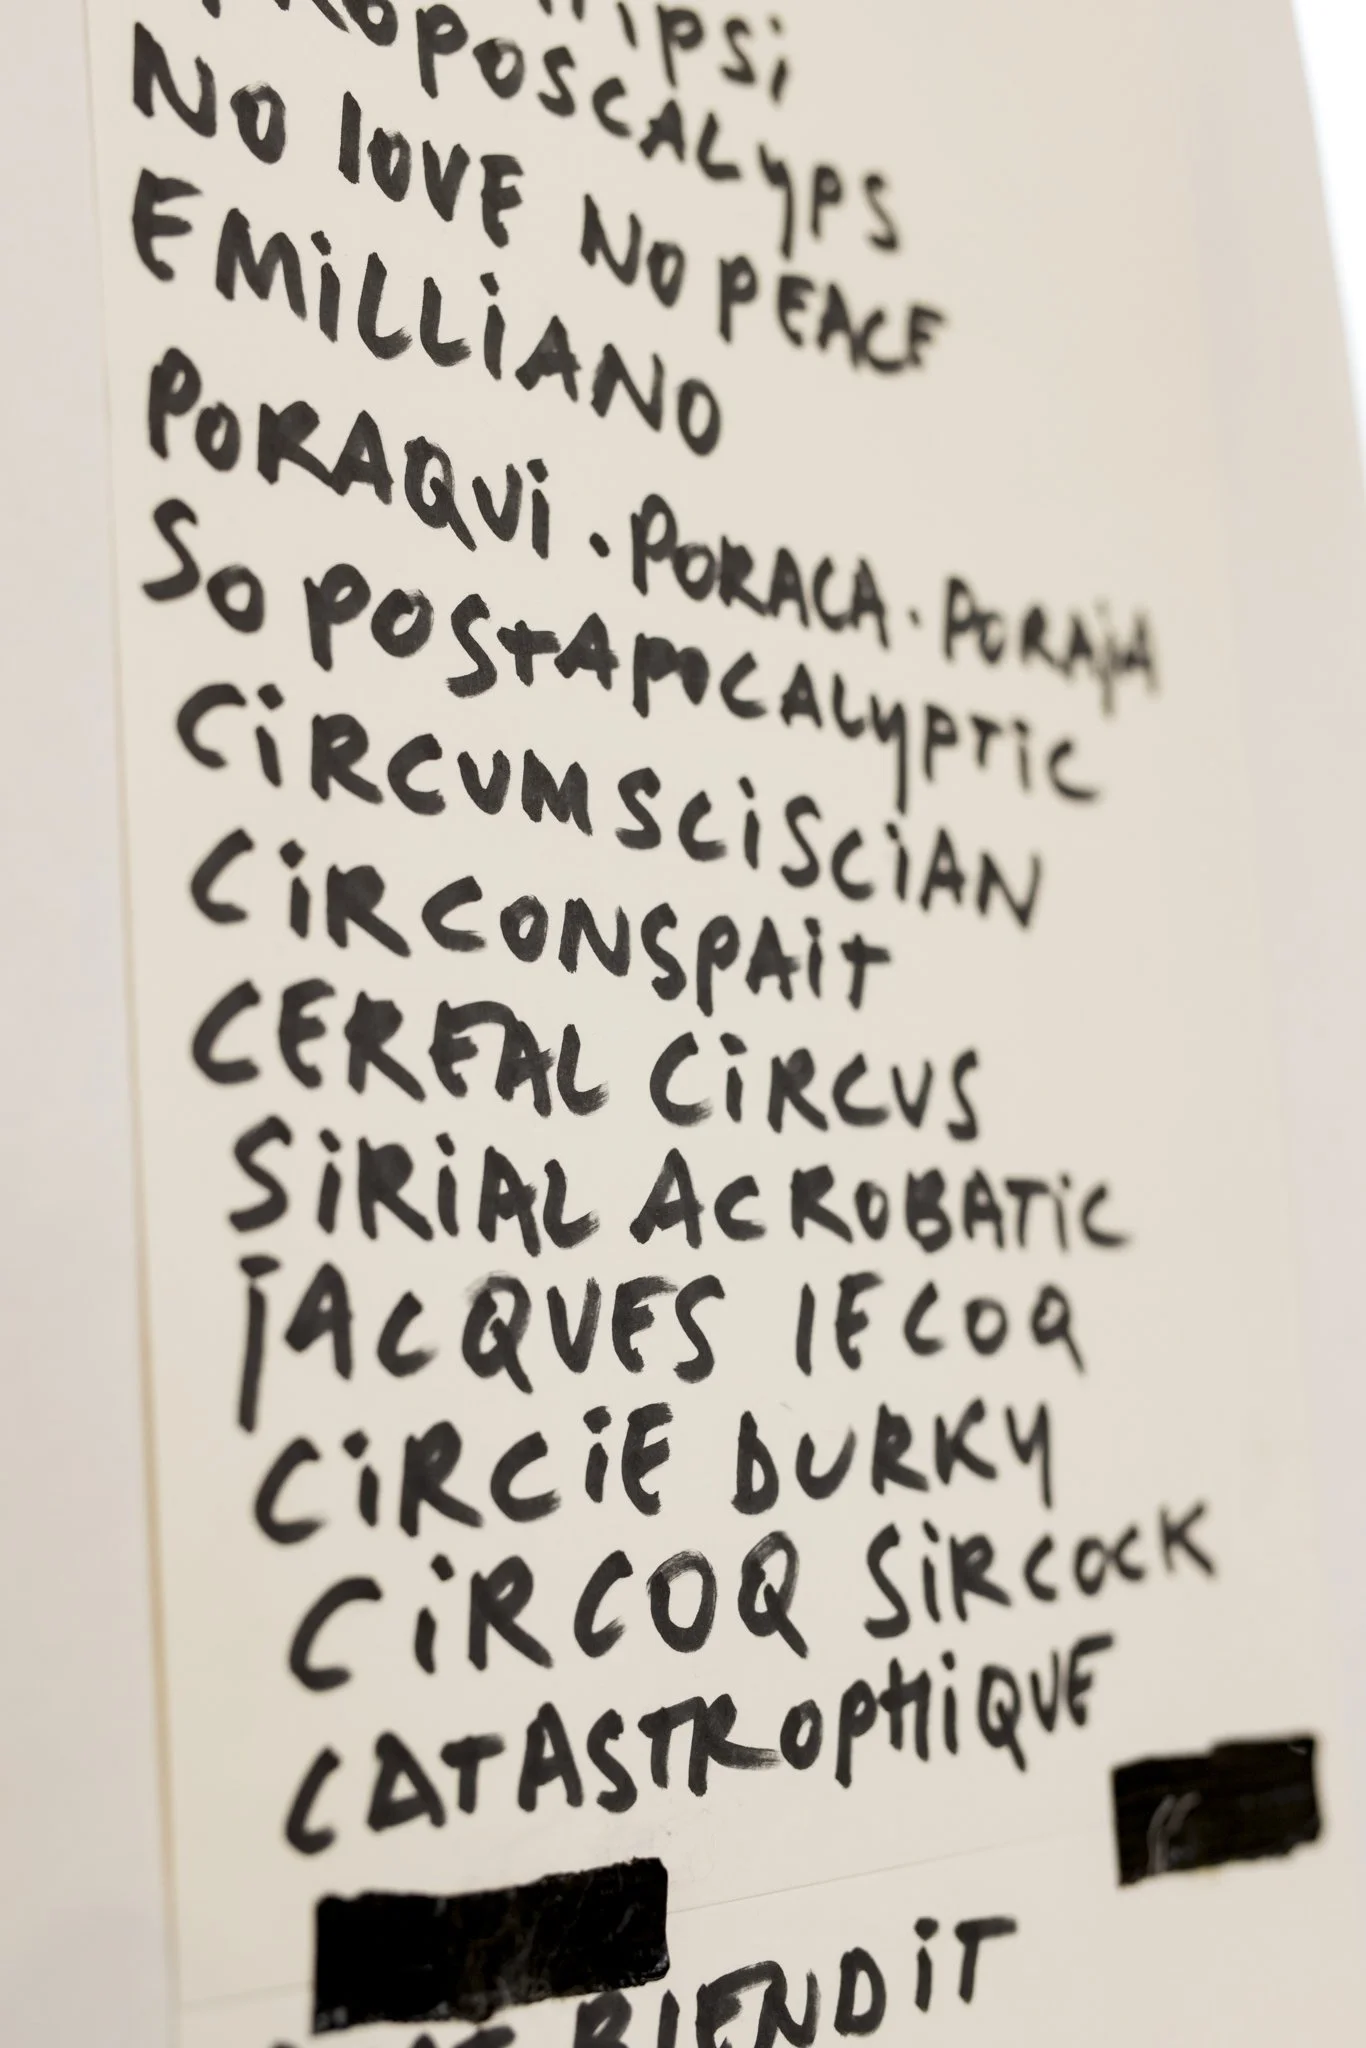 iPSi
NO lOVE NO PEACE
EMiLLiANO
PORAQUi . PORACA . PORAjA
SO POStAPOCALYPTiC
CiRCUMSCiSCiAN
CiRCONSPAit
CEREAL CiRCUS
SiRiAL ACROBATiC
jACQUES lECOQ
CiRCiE DURKY
CiRCOQ SiRCOCK
CATASTROPHiQUE
BiENDiT